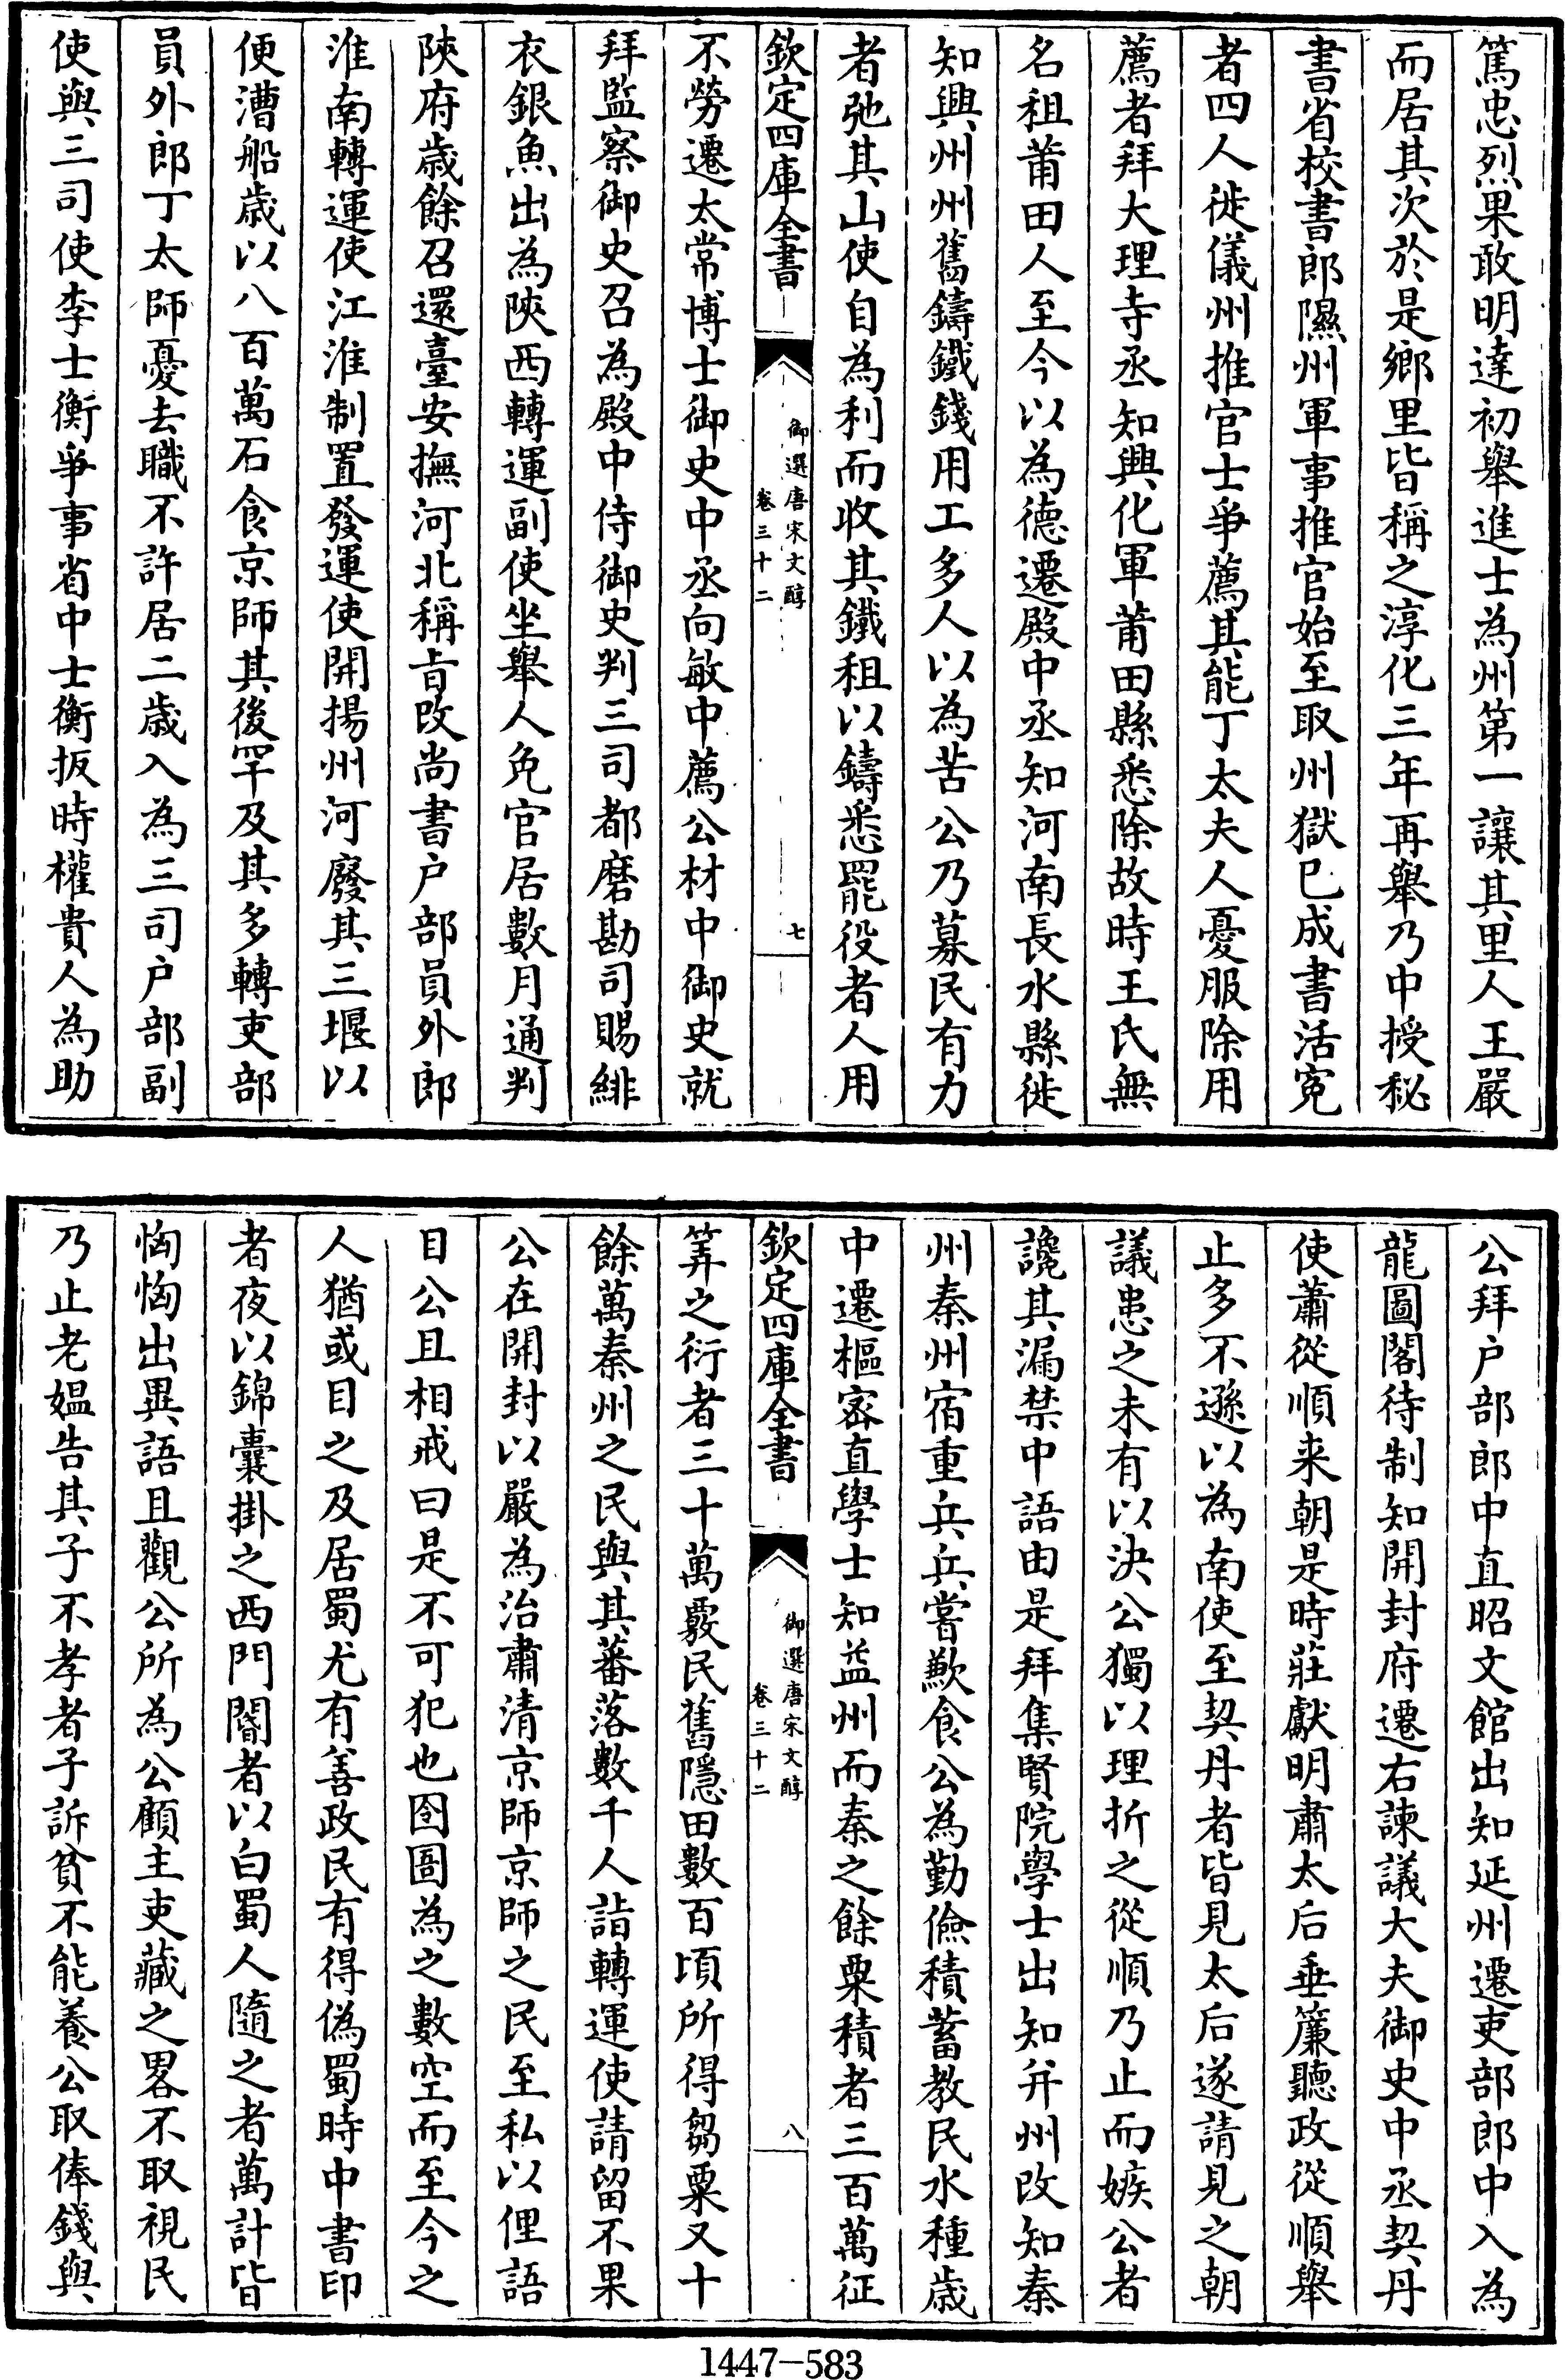 篤忠烈果敢明達初舉進士為州第一讓其里人王嚴
而居其次於是鄉里皆稱之淳化三年再舉乃中授秘
書省校書郎隰州軍事推官始至取州獄已成書活寃
者四人徙儀州推官士爭薦其能丁太夫人憂服除用
薦者拜大理寺丞知興化軍莆田縣悉除故時王氏無
名租莆田人至今以為德遷殿中丞知河南長水縣徙
知興州州舊鑄鐵錢用工多人以為苦公乃募民有力
者弛其山使自為利而收其鐵租以鑄悉罷役者人用
欽定四庫全書
御選唐宋文醇
卷三十二
七
不勞遷太常博士御史中丞向敏中薦公材中御史就
拜監察御史召為殿中侍御史判三司都磨勘司賜緋
衣銀魚出為陝西轉運副使坐舉人免官居數月通判
陝府歲餘召還臺安撫河北稱旨改尚書户部員外郎
淮南轉運使江淮制置發運使開揚州河廢其三堰以
便漕船歲以八百萬石食京師其後罕及其多轉吏部
員外郎丁太師憂去職不許居二歲入為三司户部副
使與三司使李士衡爭事省中士衡扳時權貴人為助
公拜户部郎中直昭文館出知延州遷吏部郎中入為
龍圖閣待制知開封府遷右諫議大夫御史中丞契丹
使蕭從順来朝是時莊獻明肅太后垂簾聽政從順舉
止多不遜以為南使至契丹者皆見太后遂請見之朝
議患之未有以決公獨以理折之從順乃止而嫉公者
讒其漏禁中語由是拜集賢院學士出知并州改知秦
州秦州宿重兵兵嘗歉食公為勤儉積蓄教民水種歲
中遷樞密直學士知益州而秦之餘粟積者三百萬征
欽定四庫全書
御選唐宋文醇
卷三十二
八
筭之衍者三十萬覈民舊隱田數百頃所得芻粟又十
餘萬秦州之民與其蕃落數千人詣轉運使請留不果
公在開封以嚴為治肅清京師京師之民至私以俚語
目公且相戒曰是不可犯也囹圄為之數空而至今之
人猶或目之及居蜀尤有善政民有得偽蜀時中書印
者夜以錦囊掛之西門閽者以白蜀人隨之者萬計皆
恟恟出異語且觀公所為公顧主吏藏之畧不取視民
乃止老媼告其子不孝者子訴貧不能養公取俸錢與
1447-583